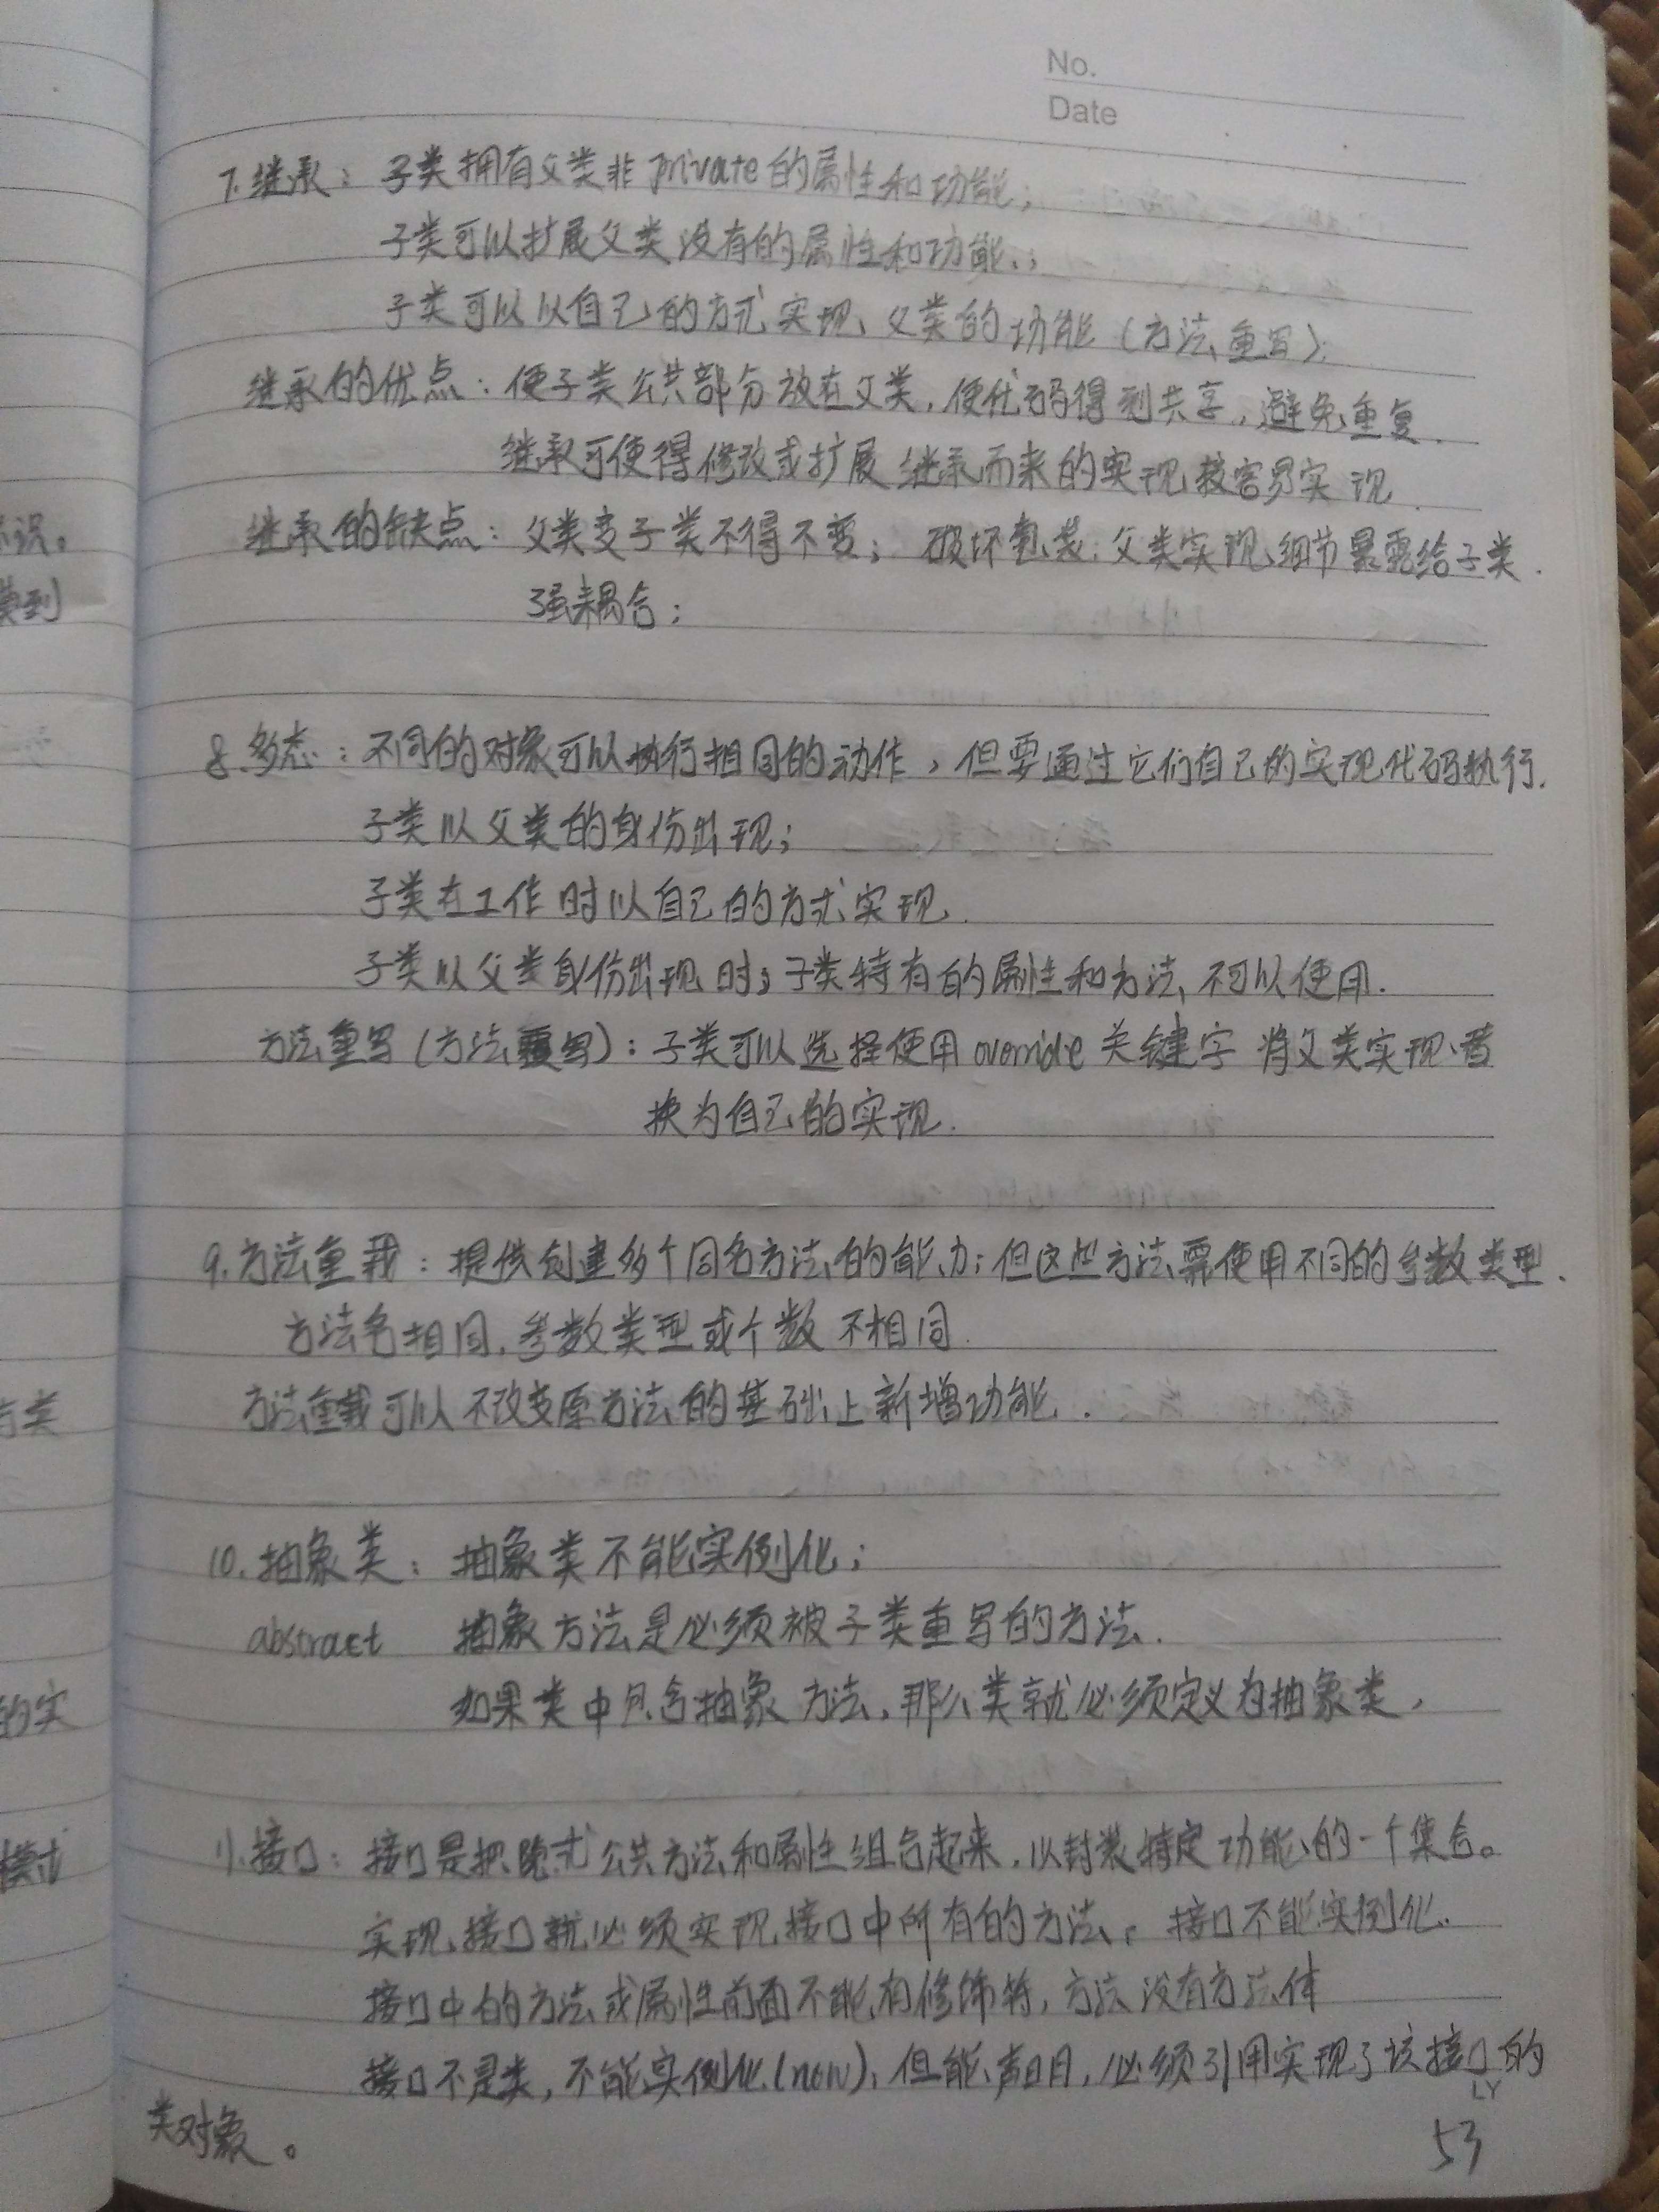 No.
Date
7.继承：子类拥有父类非private的属性和功能；
子类可以扩展父类没有的属性和功能；
子类可以以自己的方式实现父类的功能（方法重写）；
继承的优点：使子类公共部分放在父类，使代码得到共享，避免重复．
继承可使得修改或扩展继承而来的实现较容易实现．
继承的缺点：父类变子类不得不变；破坏包装：父类实现细节暴露给子类．
强耦合；
8.多态：不同的对象可以执行相同的动作，但要通过它们自己的实现代码执行．
子类以父类的身份出现；
子类在工作时以自己的方式实现．
子类以父类身份出现时，子类特有的属性和方法不可以使用．
方法重写（方法覆写）：子类可以选择使用override关键字 将父类实现替
换为自己的实现．
9.方法重载：提供创建多个同名方法的能力；但这些方法需使用不同的参数类型．
方法名相同，参数类型或个数不相同．
方法重载可以不改变原方法的基础上新增功能．
10.抽象类：抽象类不能实例化；
abstract 抽象方法是必须被子类重写的方法．
如果类中包含抽象方法，那么类就必须定义为抽象类，
11.接口：接口是把隐式公共方法和属性组合起来，以封装特定功能的一个集合。
实现接口就必须实现接口中所有的方法，接口不能实例化．
接口中的方法或属性前面不能有修饰符，方法没有方法体
接口不是类，不能实例化（new），但能声明，必须引用实现了该接口的
类对象。
LY
53
识。
类到
类
的实
模式